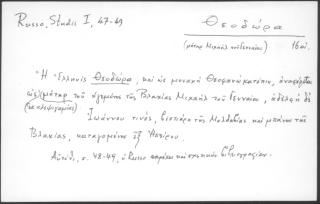 Russo, Studii I, 47-49
Θεοδώρα
(μήτηρ Μιχαὴλ τοῦ Γενναίου) 16 αἰ.
"Ἡ Ἑλληνὶς Θεοδώρα, καὶ ὡς μοναχὴ Θεοφανὼ κατόπιν, ἀναφέρεται
ὡς μήτηρ τοῦ ἡγεμόνος τῆς Βλαχίας Μιχαὴλ τοῦ Γενναίου, ἀδελφὴ δὲ
Ἰωάννου τινός, βεστιάρη τῆς Μολδαβίας καὶ μπάνου τῆς
Βλαχίας, καταγομένου ἐξ Ἠπείρου.
Αὐτόθι, σ. 48-49, ὁ Russo παρέχει καὶ σχετικὴν βιβλιογραφίαν.